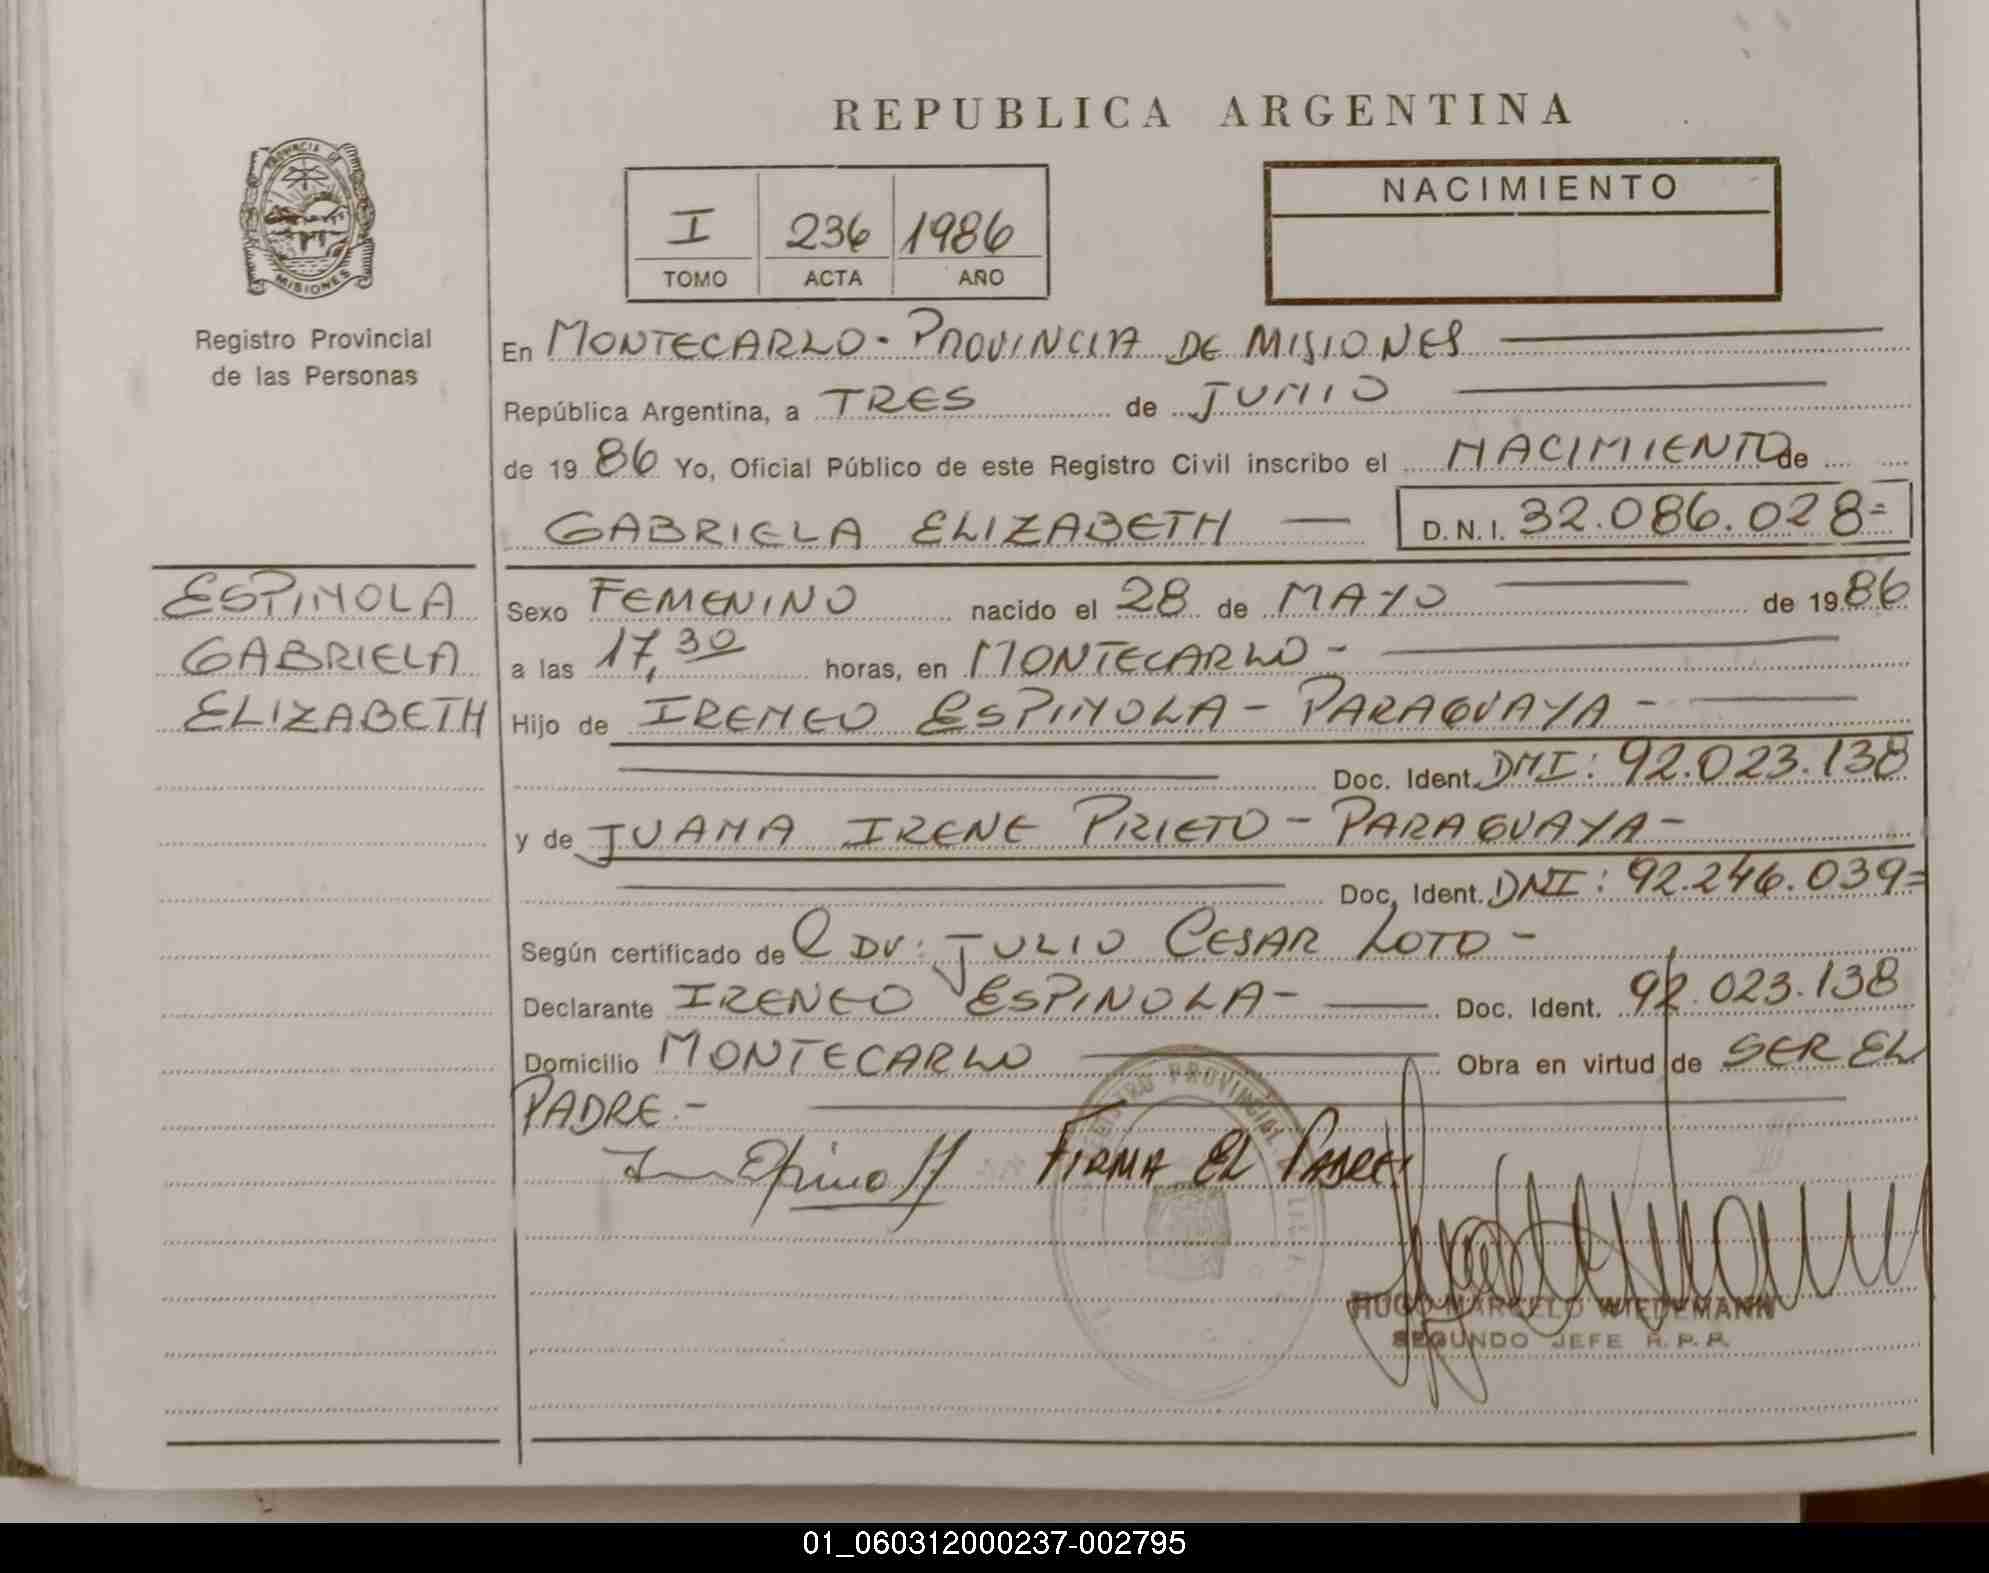 REPUBLICA ARGENTINA
PROVINCIA DE
MISIONES
Registro Provincial
de las Personas
I 236 1986
TOMO ACTA AÑO
NACIMIENTO
En MONTECARLO - PROVINCIA DE MISIONES
República Argentina, a TRES de JUNIO
de 1986 Yo, Oficial Público de este Registro Civil inscribo el NACIMIENTO de
GABRIELA ELIZABETH — D.N.I. 32.086.028=
ESPINOLA
GABRIELA
ELIZABETH
Sexo FEMENINO nacido el 28 de MAYO de 1986
a las 17,30 horas, en MONTECARLO -
Hijo de IRENEO ESPINOLA - PARAGUAYA -
Doc. Ident. DNI: 92.023.138
y de JUANA IRENE PRIETO - PARAGUAYA -
Doc. Ident. DNI: 92.246.039=
Según certificado de JULIO CESAR LOTO -
Declarante IRENEO ESPINOLA - Doc. Ident. 92.023.138
Domicilio MONTECARLO Obra en virtud de SER EL
PADRE.-
FIRMA EL PADRE
REGISTRO PROVINCIAL
HUGO MARCELO WIEDEMANN
SEGUNDO JEFE R.P.P.
01_060312000237-002795